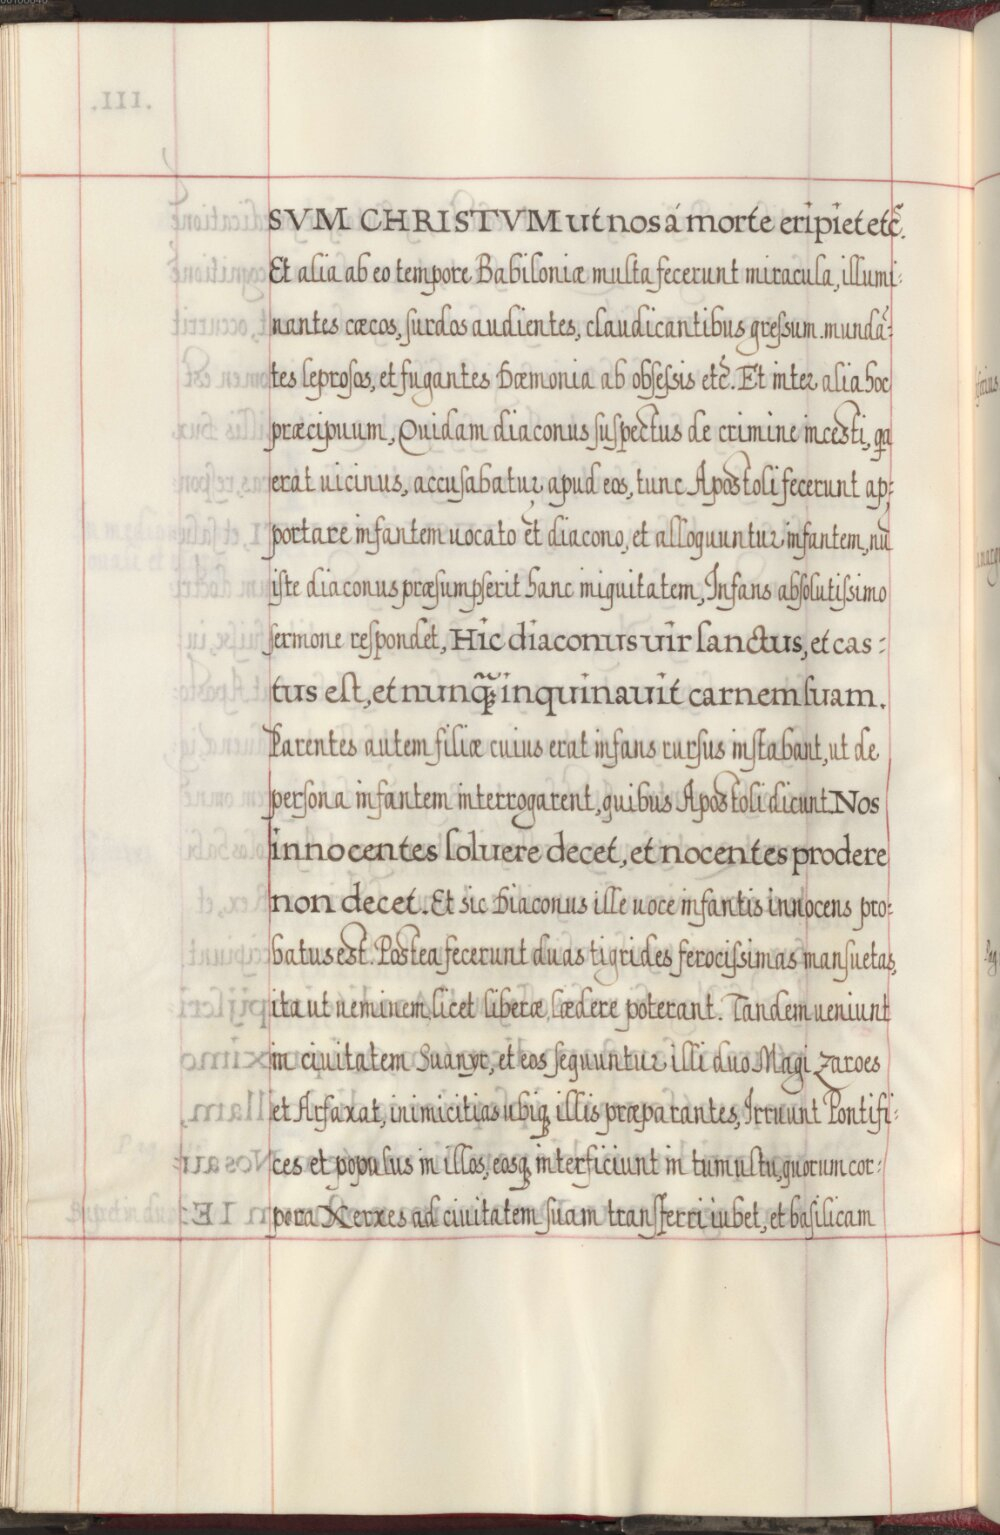 SVM CHRISTVM ut nos á morte eripiet etc̃.
Et alia ab eo tempore Babiloniæ multa fecerunt miracula, illumi-
nantes cæcos, surdos audientes, claudicantibus gressum. mundã-
tes leprosos, et fugantes Dæmonia ab obsessis etc̃. Et inter alia hoc
præcipuum, Quidam diaconus suspectus de crimine incesti, qa
erat uicinus, accusabatur apud eos, tunc Apostoli fecerunt ap-
portare infantem uocato et diacono, et alloquuntur infantem, nũ
iste diaconus præsumpserit hanc iniquitatem, Infans absolutissimo
sermone respondet, Hic diaconus uir sanctus, et cas-
tus est, et nunq̃ inquinauit carnem suam.
Parentes autem filiæ cuius erat infans rursus instabant, ut de
persona infantem interrogarent, quibus Apostoli dicunt Nos
innocentes soluere decet, et nocentes prodere
non decet. Et sic Diaconus ille uoce infantis innocens pro-
batus est. Postea fecerunt duas tigrides ferocissimas mansuetas,
ita ut neminem, licet liberæ, lædere poterant. Tandem ueniunt
in ciuitatem Suanyr, et eos sequuntur illi duo Magi Zaroes
et Arfaxat, inimicitias ubiq; illis præparantes, Irruunt Pontifi-
ces et populus in illos, eosq; interficiunt in tumultu, quorum cor-
pora Xerxes ad ciuitatem suam transferri iubet, et basilicam